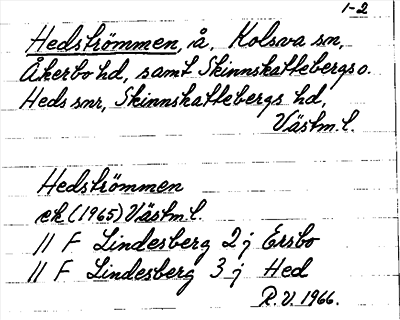 1-2
Hedströmmen, å, Kolsva sn,
Åkerbo hd, samt Skinnskattebergs o.
Heds snr, Skinnskattebergs hd,
Västm.l.
Hedströmmen
ek (1965) Västm.l.
11 F Lindesberg 2 j Ersbo
11 F Lindesberg 3 j Hed
R.V. 1966.